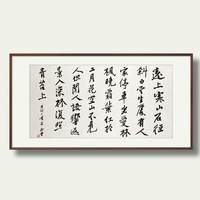 遠上寒山石徑
斜白雲生處有人
家停車坐愛楓
林晚霜葉紅於
二月花空山不見
人但聞人語響返
景入深林復照
青苔上